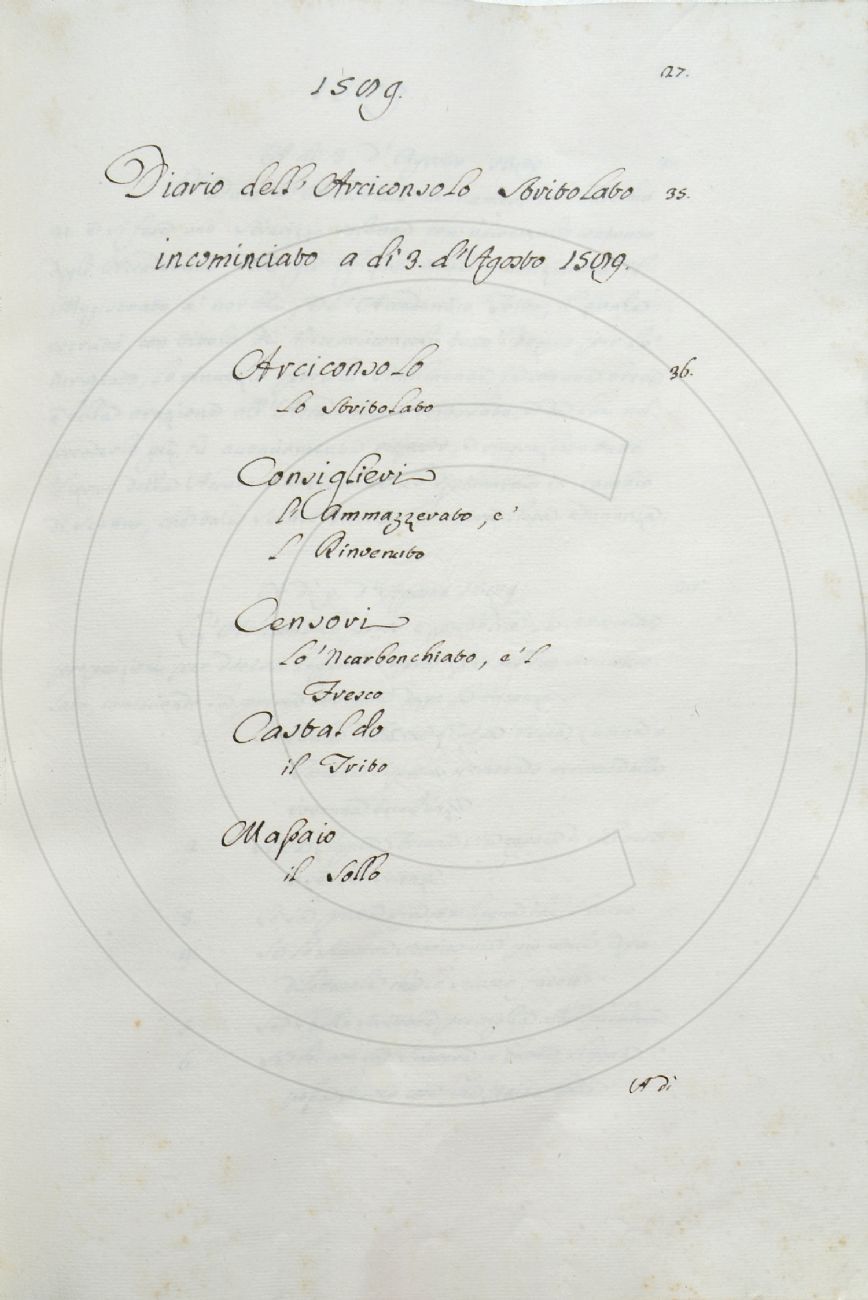 27.
1589.
Diario dell' Arciconsolo Stritolato 35.
incominciato a dì 3. d'Agosto 1589.
Arciconsolo 36.
lo Stritolato
Consiglieri
l'Ammazzerato, e'
l Rinvenuto
Censori
lo 'Ncarbonchiato, e' l
Fresco
Castaldo
il Trito
Massaio
il Sollo
A dì